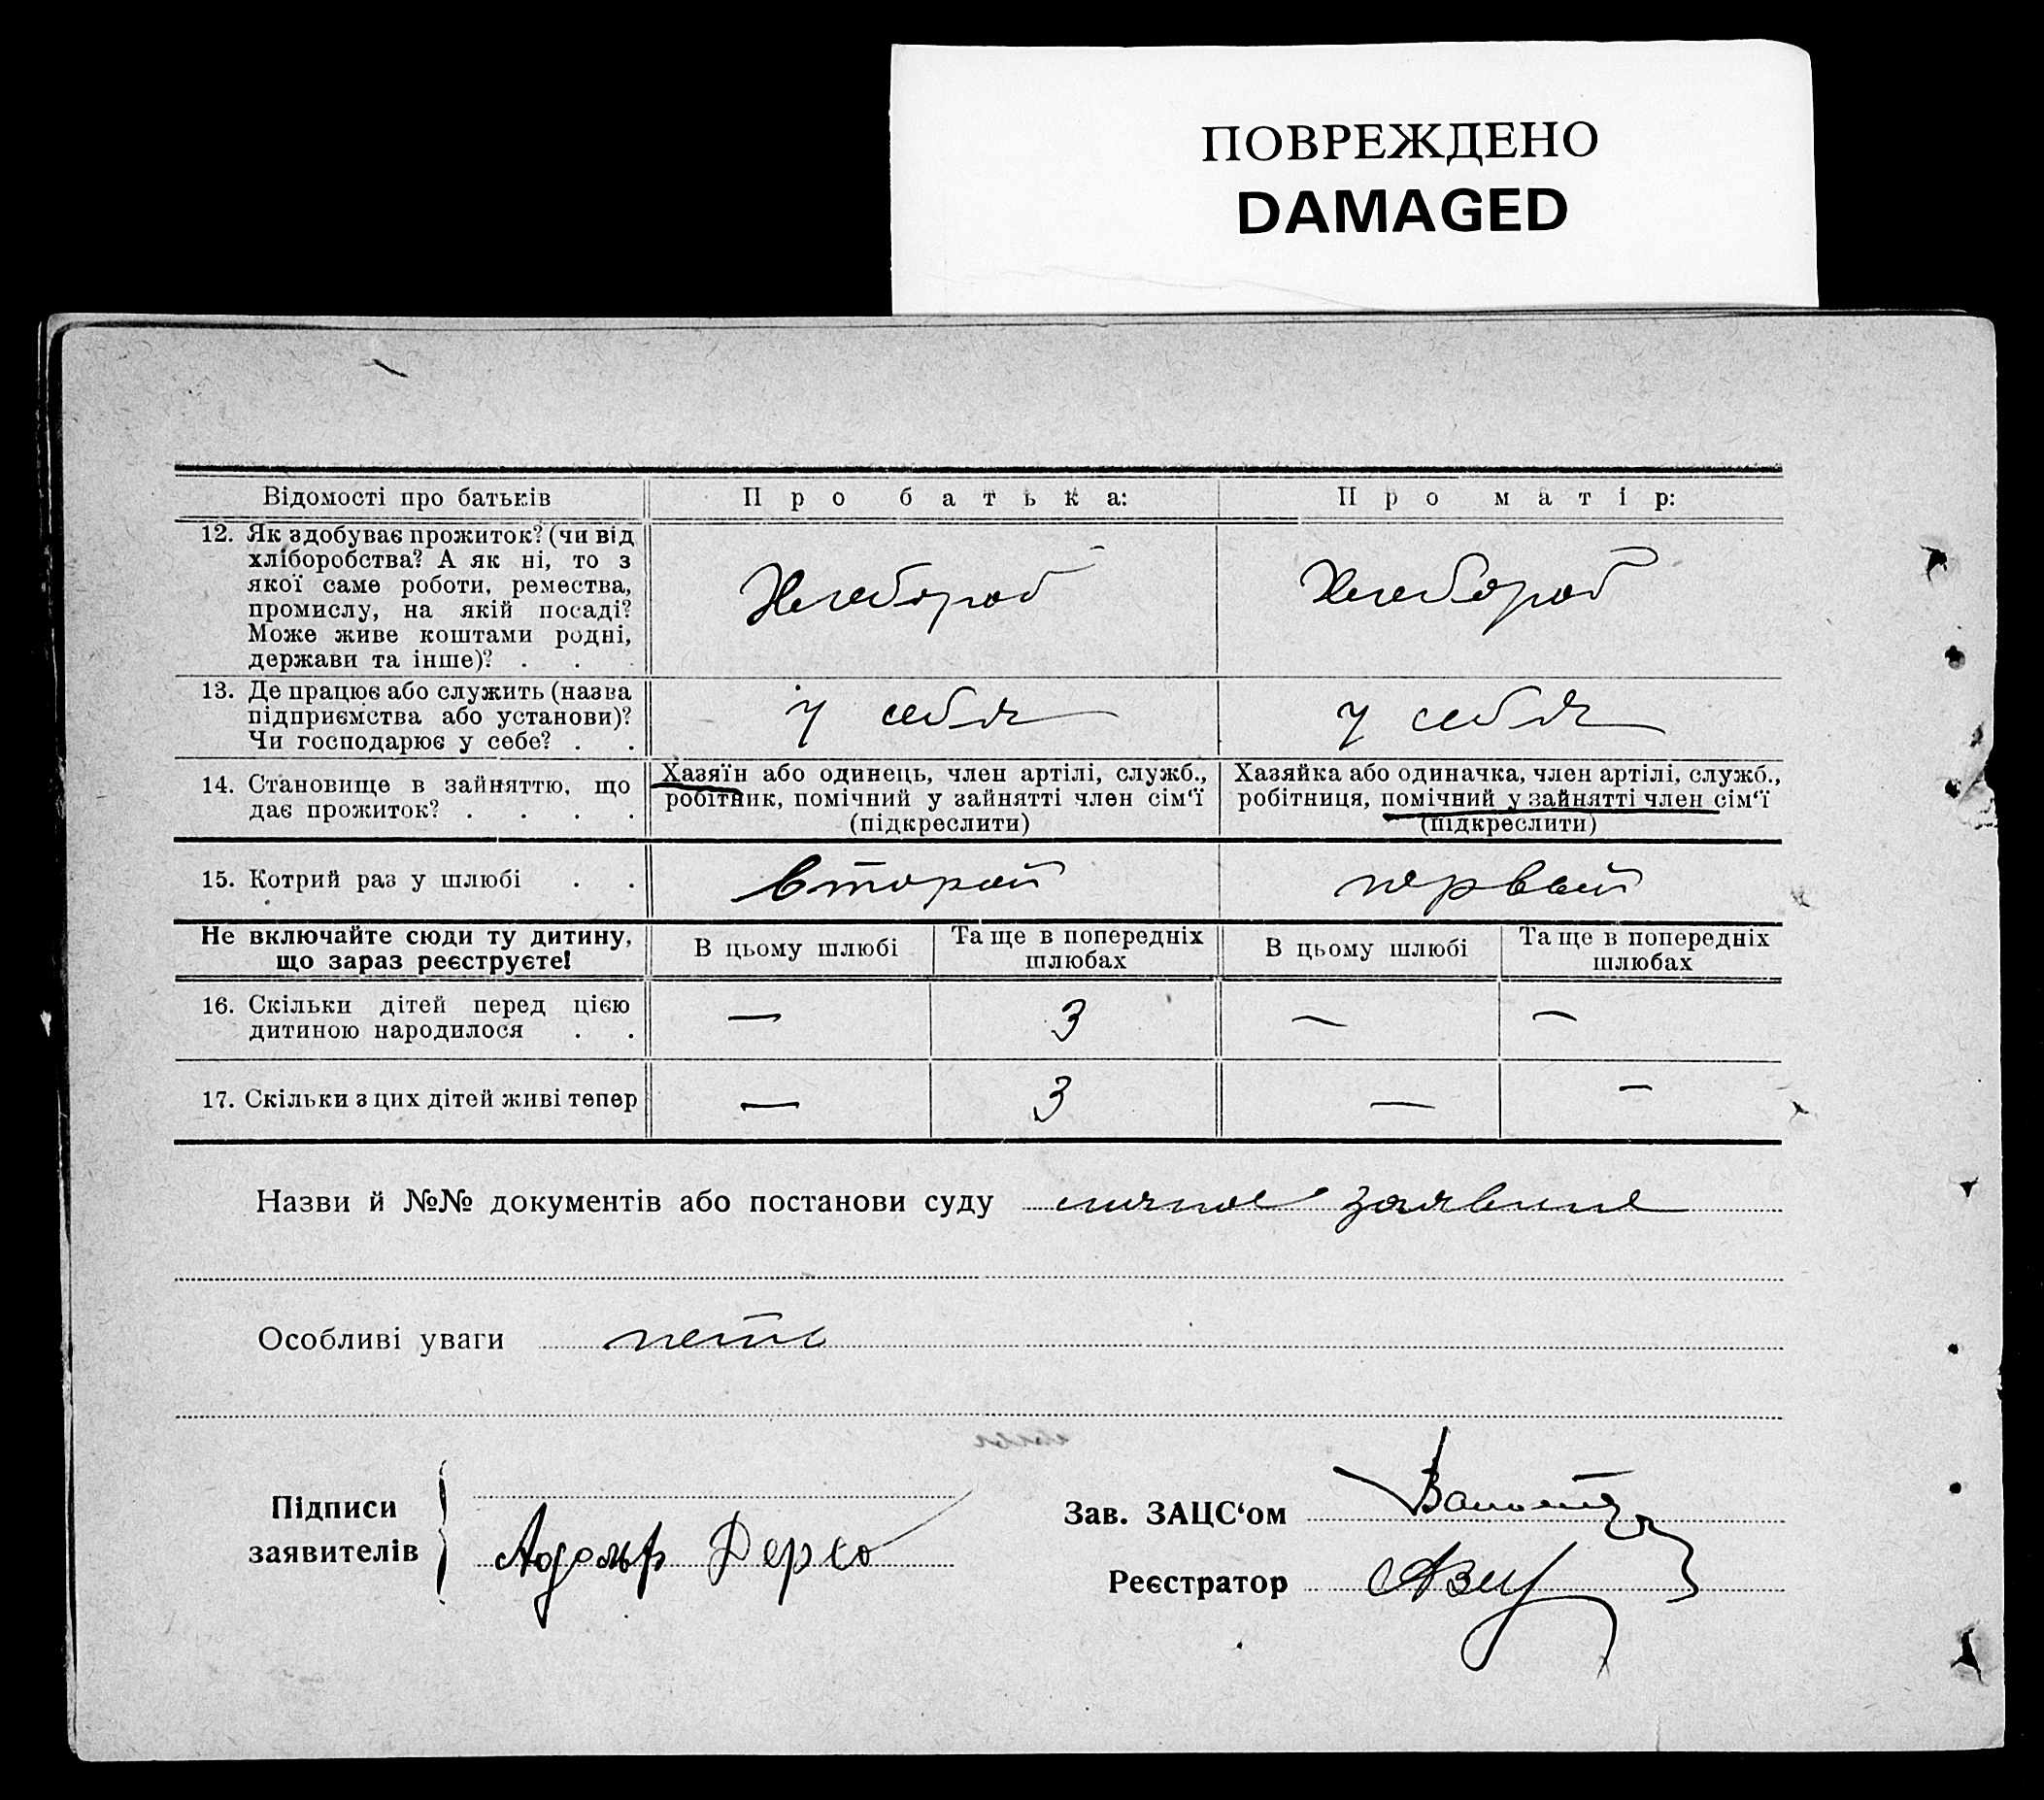 ПОВРЕЖДЕНО
DAMAGED
Відомості про батьків
Про батька:
Про матір:
12. Як здобуває прожиток? (чи від
хліборобства? А як ні, то з
якої саме роботи, ремества,
промислу, на якій посаді?
Може живе коштами родні,
держави та інше)? . .
Хлебороб
Хлебороб
13. Де працює або служить (назва
підприємства або установи)?
Чи господарює у себе? . .
у себя
у себя
14. Становище в зайняттю, що
дає прожиток? . . . .
Хазяїн або одинець, член артілі, служб.,
робітник, помічний у зайнятті член сім'ї
(підкреслити)
Хазяйка або одиначка, член артілі, служб.,
робітниця, помічний у зайнятті член сім'ї
(підкреслити)
15. Котрий раз у шлюбі . .
второй
первый
Не включайте сюди ту дитину,
що зараз реєструєте!
В цьому шлюбі
Та ще в попередніх
шлюбах
В цьому шлюбі
Та ще в попередніх
шлюбах
16. Скільки дітей перед цією
дитиною народилося . .
— 3 — —
17. Скільки з цих дітей живі тепер
— 3 — —
Назви й №№ документів або постанови суду личное заявление
Особливі уваги нет
Підписи
заявителів
Адольф
Зав. ЗАЦС'ом
Реєстратор